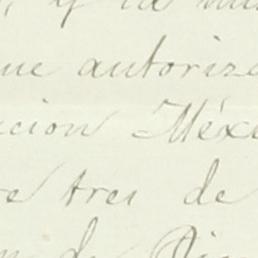 y la
ue autoriza
cion Méx
e tres de
de